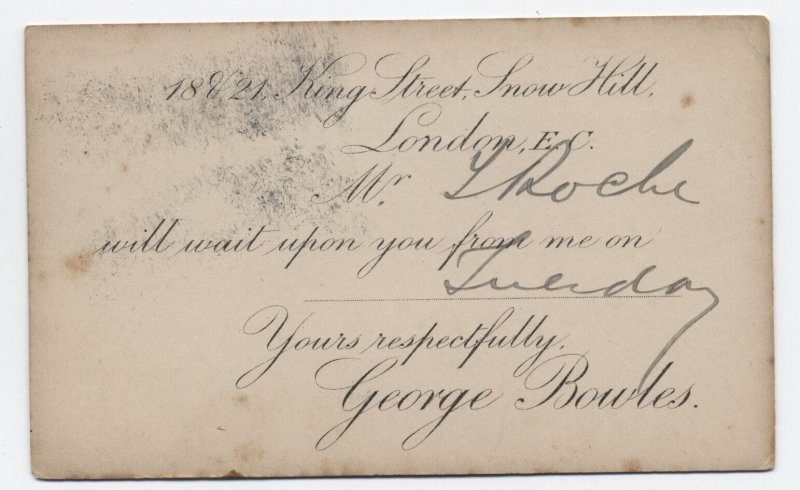 18 & 21, King Street, Snow Hill,
London, E.C.
Mr. Roche
will wait upon you from me on
Tuesday
Yours respectfully,
George Bowles.